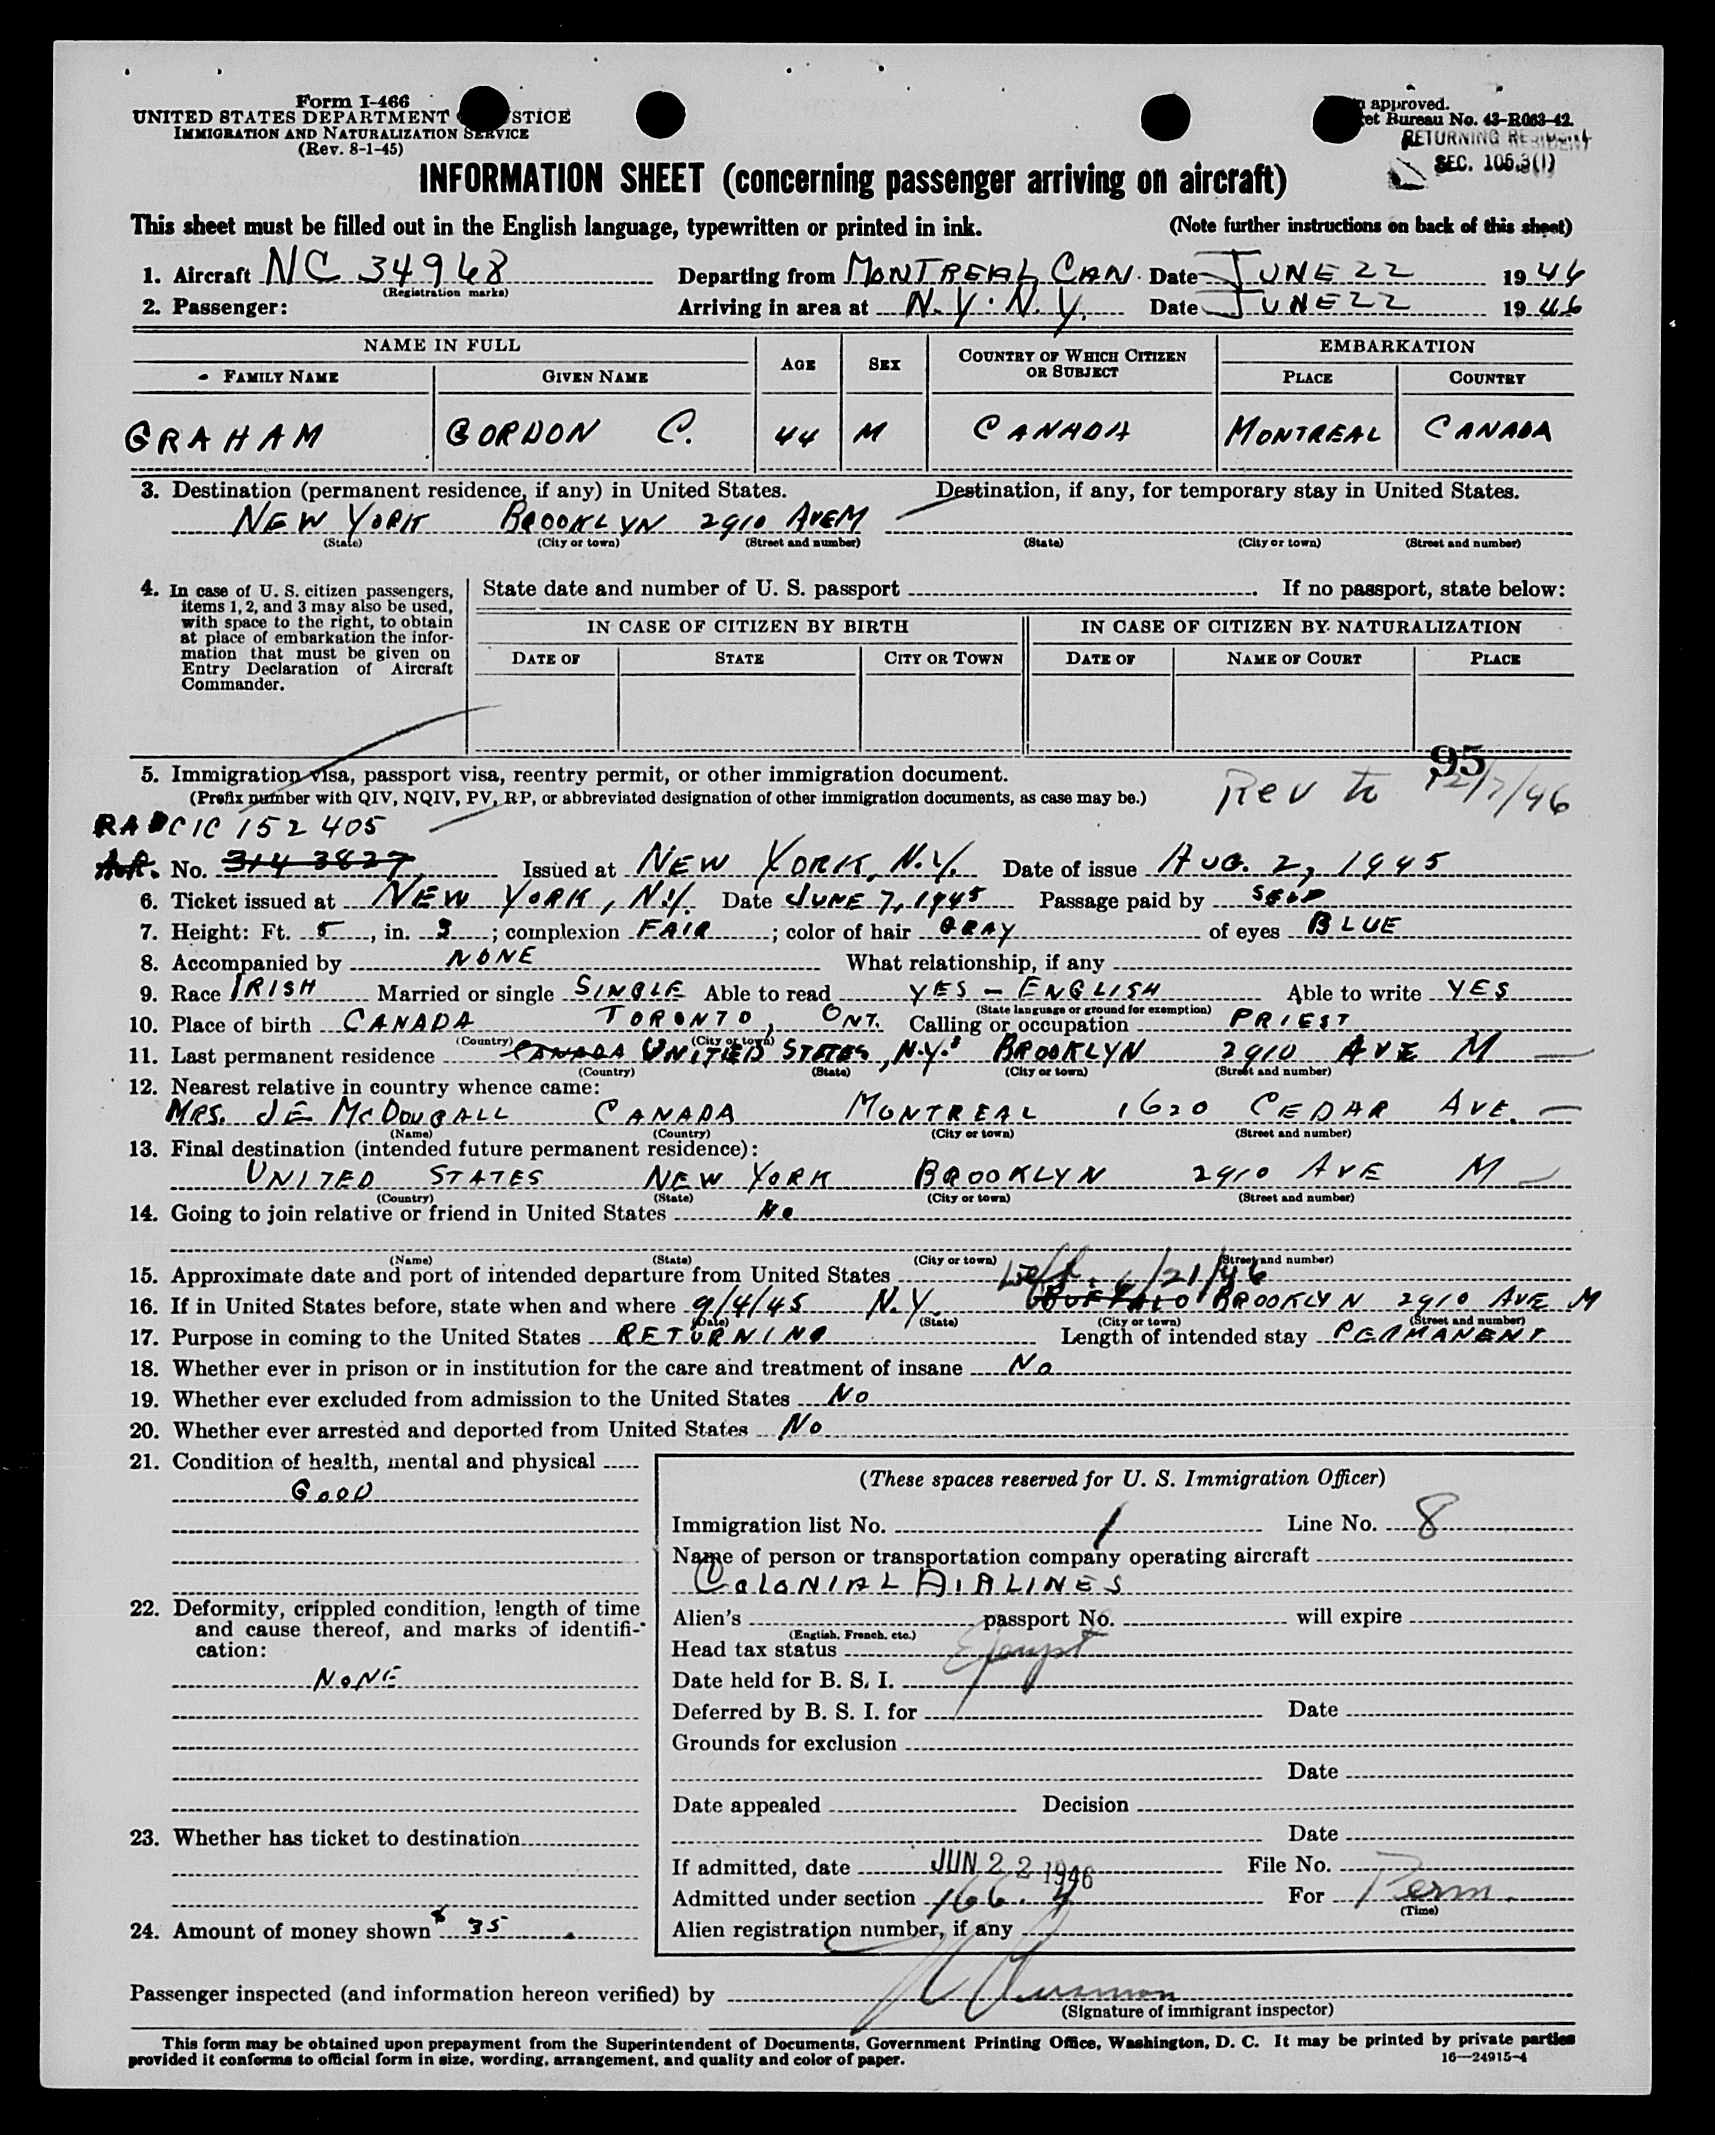 Form I-466
UNITED STATES DEPARTMENT STICE
IMMIGRATION AND NATURALIZATION SERVICE
(Rev. 8-1-45)
approved.
et Bureau No. 43-R063-42.
RETURNING RESIDENT
SEC. 106.3(1)
INFORMATION SHEET (concerning passenger arriving on aircraft)
This sheet must be filled out in the English language, typewritten or printed in ink. (Note further instructions on back of this sheet)
1. Aircraft NC 34968 Departing from MONTREAL CAN. Date JUNE 22 1946
(Registration marks)
2. Passenger: Arriving in area at N.Y. N.Y. Date JUNE 22 1946
NAME IN FULL AGE SEX COUNTRY OF WHICH CITIZEN OR SUBJECT EMBARKATION
FAMILY NAME GIVEN NAME PLACE COUNTRY
GRAHAM GORDON C. 44 M CANADA MONTREAL CANADA
3. Destination (permanent residence, if any) in United States. Destination, if any, for temporary stay in United States.
NEW YORK BROOKLYN 2910 AVE M
(State) (City or town) (Street and number) (State) (City or town) (Street and number)
4. In case of U. S. citizen passengers, items 1, 2, and 3 may also be used, with space to the right, to obtain at place of embarkation the information that must be given on Entry Declaration of Aircraft Commander.
State date and number of U. S. passport If no passport, state below:
IN CASE OF CITIZEN BY BIRTH IN CASE OF CITIZEN BY NATURALIZATION
DATE OF STATE CITY OR TOWN DATE OF NAME OF COURT PLACE
95
5. Immigration visa, passport visa, reentry permit, or other immigration document.
(Prefix number with QIV, NQIV, PV, RP, or abbreviated designation of other immigration documents, as case may be.)
Rev to 12/7/46
CIC 152405
A.R. No. 314 3827 Issued at NEW YORK, N.Y. Date of issue AUG. 2, 1945
6. Ticket issued at NEW YORK, N.Y. Date JUNE 7, 1945 Passage paid by SELF
7. Height: Ft. 5, in. 3; complexion FAIR; color of hair GRAY of eyes BLUE
8. Accompanied by NONE What relationship, if any
9. Race IRISH Married or single SINGLE Able to read YES - ENGLISH Able to write YES
(State language or ground for exemption)
10. Place of birth CANADA TORONTO, ONT. Calling or occupation PRIEST
(Country) (City or town)
11. Last permanent residence CANADA UNITED STATES, N.Y. BROOKLYN 2910 AVE M
(Country) (State) (City or town) (Street and number)
12. Nearest relative in country whence came:
MRS. J E MCDOUGALL CANADA MONTREAL 1620 CEDAR AVE.
(Name) (Country) (City or town) (Street and number)
13. Final destination (intended future permanent residence):
UNITED STATES NEW YORK BROOKLYN 2910 AVE M
(Country) (State) (City or town) (Street and number)
14. Going to join relative or friend in United States No
(Name) (State) (City or town) (Street and number)
15. Approximate date and port of intended departure from United States Left 6/21/46
16. If in United States before, state when and where 9/4/45 N.Y. BUFFALO BROOKLYN 2910 AVE M
(Date) (State) (City or town) (Street and number)
17. Purpose in coming to the United States RETURNING Length of intended stay PERMANENT
18. Whether ever in prison or in institution for the care and treatment of insane No
19. Whether ever excluded from admission to the United States No
20. Whether ever arrested and deported from United States No
21. Condition of health, mental and physical
GOOD
22. Deformity, crippled condition, length of time and cause thereof, and marks of identification:
NONE
23. Whether has ticket to destination
24. Amount of money shown $ 35
(These spaces reserved for U. S. Immigration Officer)
Immigration list No. 1 Line No. 8
Name of person or transportation company operating aircraft
COLONIAL AIRLINES
Alien's passport No. will expire
(English, French, etc.)
Head tax status Exempt
Date held for B. S. I.
Deferred by B. S. I. for Date
Grounds for exclusion
Date
Date appealed Decision
Date
If admitted, date JUN 22 1946 File No.
Admitted under section 166.4 For Perm.
(Time)
Alien registration number, if any
Passenger inspected (and information hereon verified) by
(Signature of immigrant inspector)
This form may be obtained upon prepayment from the Superintendent of Documents, Government Printing Office, Washington, D. C. It may be printed by private parties
provided it conforms to official form in size, wording, arrangement, and quality and color of paper. 16—24915-4